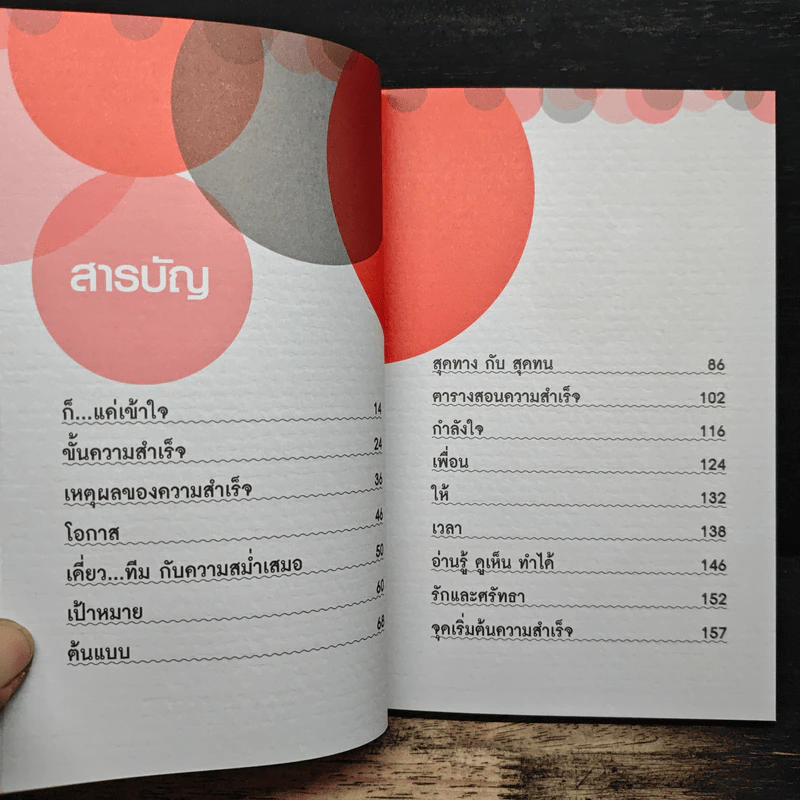 สารบัญ
ก็...แค่เข้าใจ 14
ขั้นความสำเร็จ 24
เหตุผลของความสำเร็จ 36
โอกาส 46
เดี่ยว...ทีม กับความสม่ำเสมอ 50
เป้าหมาย 60
ต้นแบบ 68
สุดทาง กับ สุดทน 86
ตารางสอนความสำเร็จ 102
กำลังใจ 116
เพื่อน 124
ให้ 132
เวลา 138
อ่านรู้ ดูเห็น ทำได้ 146
รักและศรัทธา 152
จุดเริ่มต้นความสำเร็จ 157